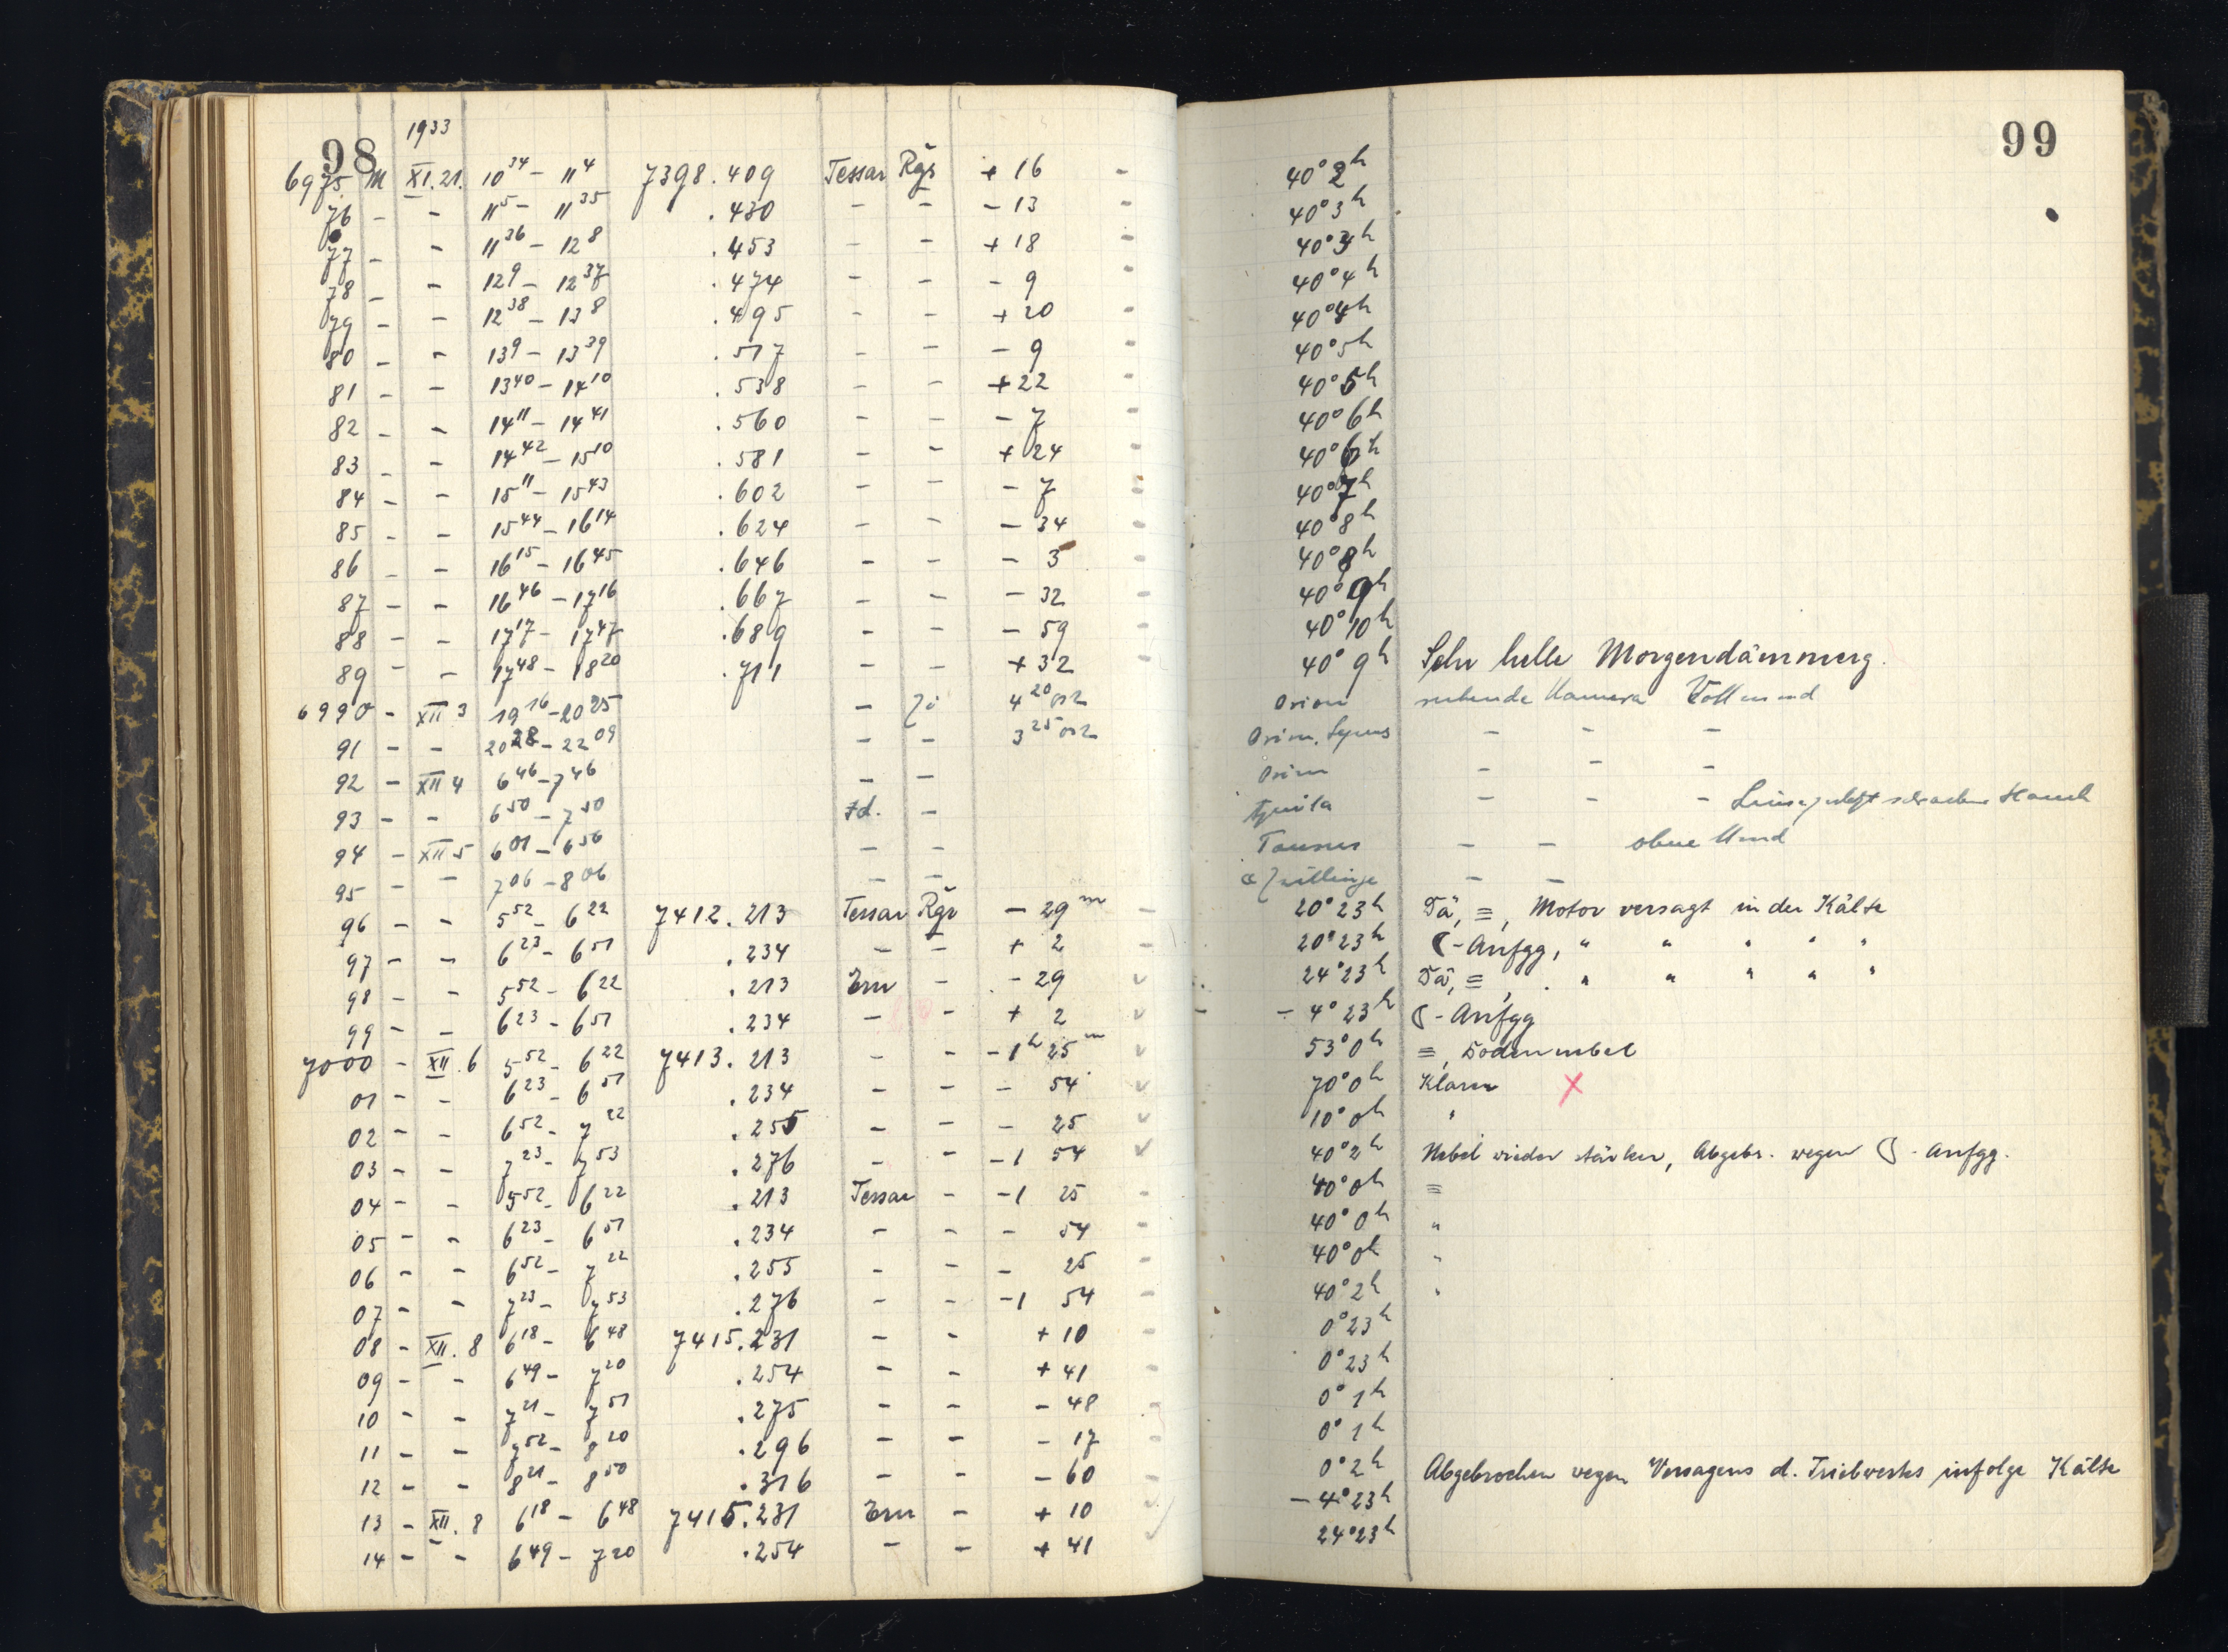 98 1933 99
6975 M XI.21. 10 34 – 11 4 7398.409 Tessar Rgr + 16 - 40° 2h
76 - - 11 5 – 11 35 .430 - - - 13 - 40° 3h
77 - - 11 36 – 12 8 .453 - - + 18 - 40° 3h
78 - - 12 9 – 12 37 .474 - - - 9 - 40° 4h
79 - - 12 38 – 13 8 .495 - - + 20 - 40° 4h
80 - - 13 9 – 13 39 .517 - - - 9 - 40° 5h
81 - - 13 40 – 14 10 .538 - - + 22 - 40° 5h
82 - - 14 11 – 14 41 .560 - - - 7 - 40° 6h
83 - - 14 42 – 15 10 .581 - - + 24 - 40° 6h
84 - - 15 11 – 15 43 .602 - - - 7 - 40° 7h
85 - - 15 44 – 16 14 .624 - - - 34 - 40° 8h
86 - - 16 15 – 16 45 .646 - - - 3 - 40° 8h
87 - - 16 46 – 17 16 .667 - - - 32 - 40° 9h
88 - - 17 17 – 17 47 .689 - - - 59 - 40° 10h
89 - - 17 48 – 18 20 .711 - - + 32 - 40° 9h Sehr helle Morgendämmerg.
6990 - XII 3 19 16 – 20 25 - Zi 4 20 Orion ruhende Kamera Vollmond
91 - - 20 28 – 22 09 - - 3 25 Orion, - - -
92 - XII 4 6 46 – 7 46 - - Orion - - -
93 - - 6 50 – 7 50 Id. - Aquila - - -
94 - XII 5 6 01 – 6 56 - - Taurus - - ohne Mond
95 - - 7 06 – 8 06 - - α Zwillinge - -
96 - - 5 52 – 6 22 7412.213 Tessar Rgr - 29 m - 20° 23h Dä, ≡, Motor versagt in der Kälte
97 - - 6 23 – 6 51 .234 - - + 2 20° 23h ☾-Aufgg, " " " " "
98 - - 5 52 – 6 22 .213 Ern - - 29 v 24° 23h Dä, ≡, " " " " "
99 - - 6 23 – 6 51 .234 - - + 2 v - 4° 23h ☾-Aufgg
7000 - XII.6 5 52 – 6 22 7413.213 - - - 1h 25 m v 53° 0h ≡, Bodennebel
01 - - 6 23 – 6 51 .234 - - - 54 v 70° 0h Klarer X
02 - - 6 52 – 7 22 .255 - - - 25 v 10° 0h "
03 - - 7 23 – 7 53 .276 - - - 1 54 v 40° 2h Nebel wieder stärker, Abgebr. wegen ☾-Aufgg.
04 - - 5 52 – 6 22 .213 Tessar - - 1 25 - 40° 0h ≡
05 - - 6 23 – 6 51 .234 - - - 54 - 40° 0h "
06 - - 6 52 – 7 22 .255 - - - 25 - 40° 0h "
07 - - 7 23 – 7 53 .276 - - - 1 54 - 40° 2h "
08 - XII.8 6 18 – 6 48 7415.231 - - + 10 - 0° 23h
09 - - 6 49 – 7 20 .254 - - + 41 - 0° 23h
10 - - 7 21 – 7 51 .275 - - - 48 - 0° 1h
11 - - 7 52 – 8 20 .296 - - - 17 - 0° 1h
12 - - 8 21 – 8 50 .316 - - - 60 - 0° 2h Abgebrochen wegen Versagens d. Triebwerks infolge Kälte
13 - XII.8 6 18 – 6 48 7415.231 Ern - + 10 v - 4° 23h
14 - - 6 49 – 7 20 .254 - - + 41 v 24° 23h